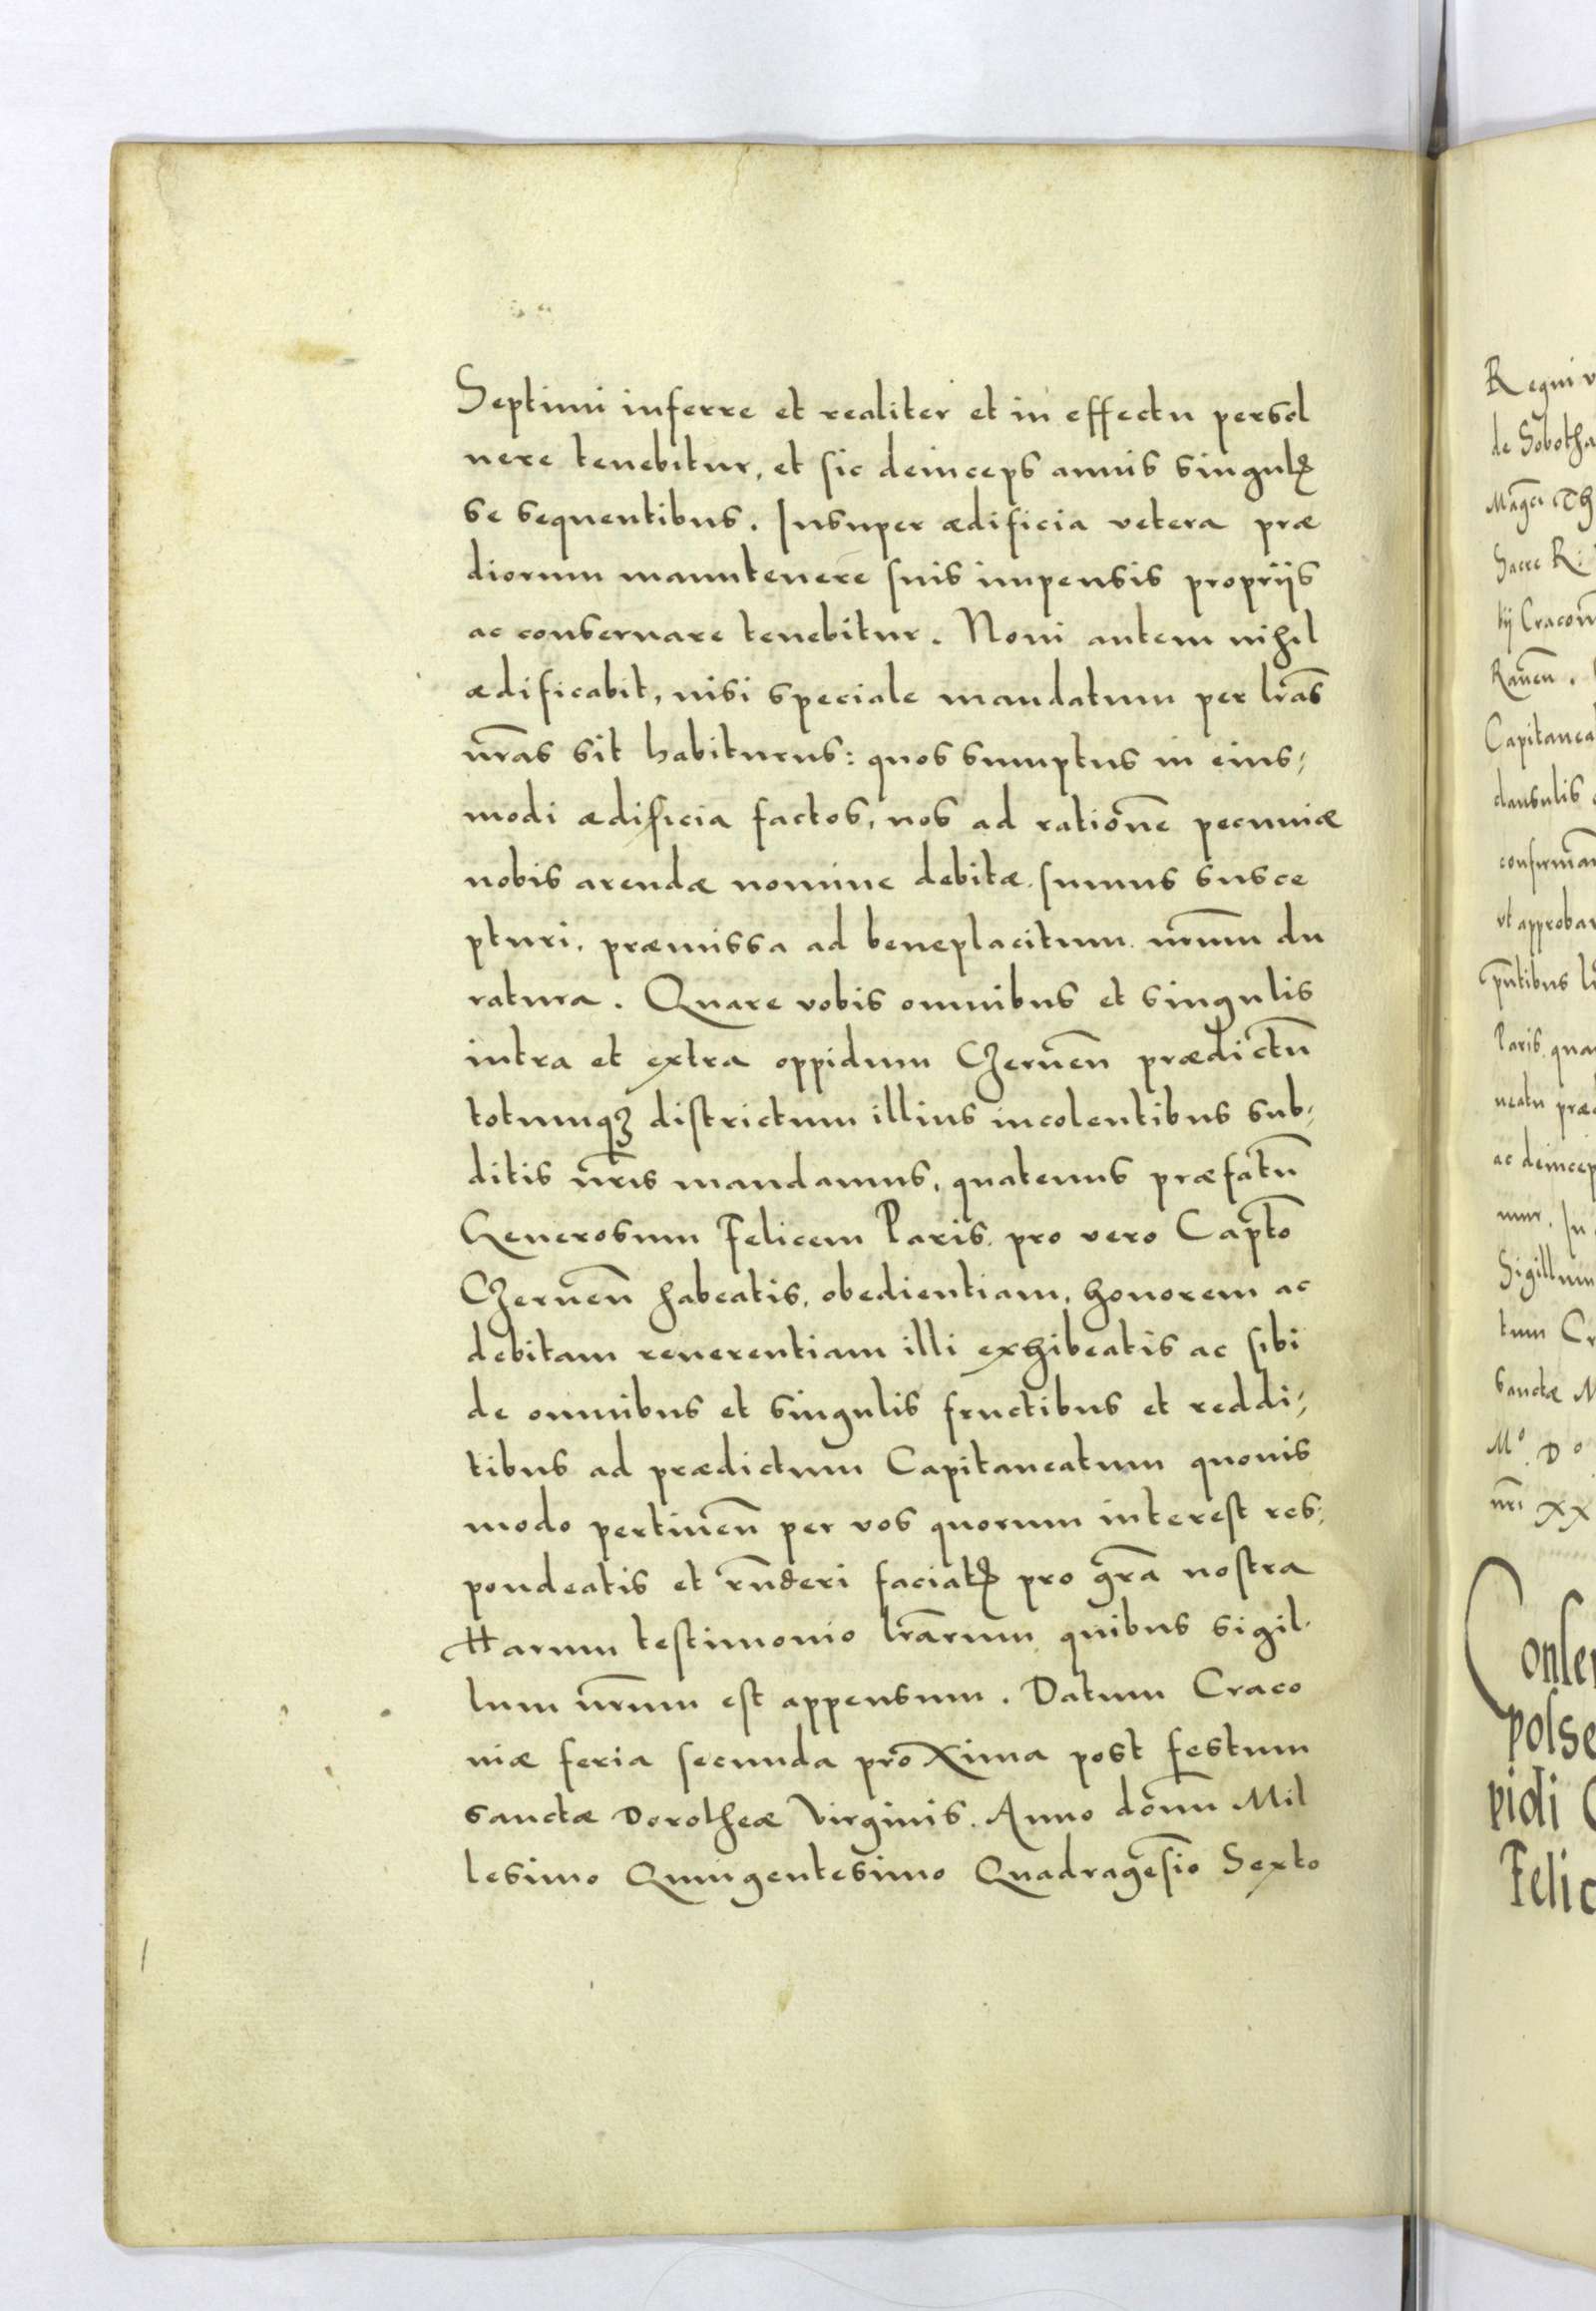 Septimi inferre et realiter et in effectu persol
uere tenebitur, et sic deinceps annis singulꝭ
se sequentibus. Insuper ædificia vetera præ
diorum manutenere suis impensis propriis
ac conseruare tenebitur. Noui autem nihil
ædificabit, nisi speciale mandatum per lr̃as
nr̃as sit habiturus: quos sumptus in eius,
modi ædificia factos, nos ad rationẽ pecuniæ
nobis arendæ nomine debitæ sumus susce
pturi. præmissa ad beneplacitum nr̃um du
ratura. Quare vobis omnibus et singulis
intra et extra oppidum Czeruen̄ prædictũ
totumqꝫ districtum illius incolentibus sub,
ditis nr̃is mandamus, quatenus præfatũ
Generosum Felicem Paris. pro vero Capto̅
Czeruen̄ habeatis, obedientiam, honorem ac
debitam reuerentiam illi exhibeatis ac sibi
de omnibus et singulis fructibus et reddi,
tibus ad prædictum Capitaneatum quouis
modo pertinen̄ per vos quorum interest res,
pondeatis et rn̄deri faciatꝭ pro gr̃a nostra
Harum testimonio lr̃arum quibus sigil
lum nr̃um est appensum. Datum Craco
uiæ feria secunda proxima post festum
sanctæ Dorotheæ Virginis. Anno domĩ Mil
lesimo Quingentesimo Quadragesĩo Sexto
Regni
de Sobotha
Sacre R:
Capitanea
clausulis
vt approba
Paris. qua
ac deincep
Sigillum
tum Cr
sanctæ M
M° D°
nr̃i XX
polse
pidi
Felic